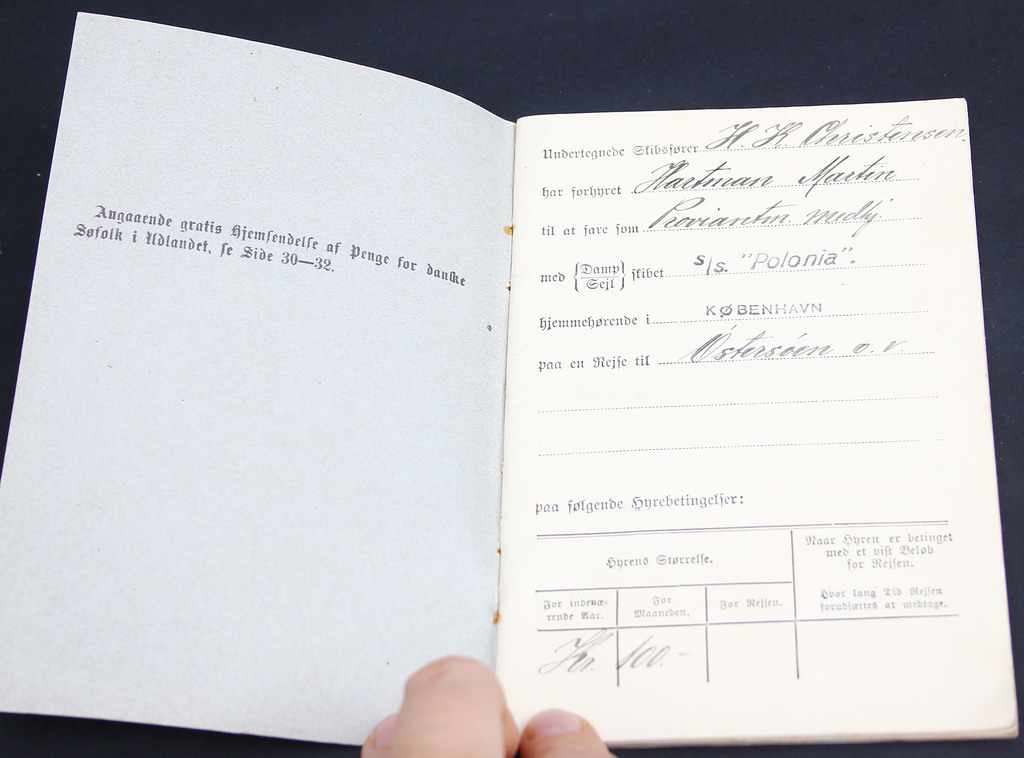 Angaaende gratis Hjemsendelse af Penge for danske
Søfolk i Udlandet, se Side 30—32.
Undertegnede Skibsfører H. K. Christensen.
har forhyret Hartman Martin
til at fare som Proviantm. medhj.
med {Damp/Sejl} skibet s/s. "Polonia".
hjemmehørende i KØBENHAVN
paa en Rejse til Østersøen o. v.
paa følgende Hyrebetingelser:
Hyrens Størrelse.
For indevæ-
rende Aar.
For
Maaneden.
For Rejsen.
Naar Hyren er betinget
med et vist Beløb
for Rejsen.
Hvor lang Tid Rejsen
forudsættes at medtage.
Kr. 100.-